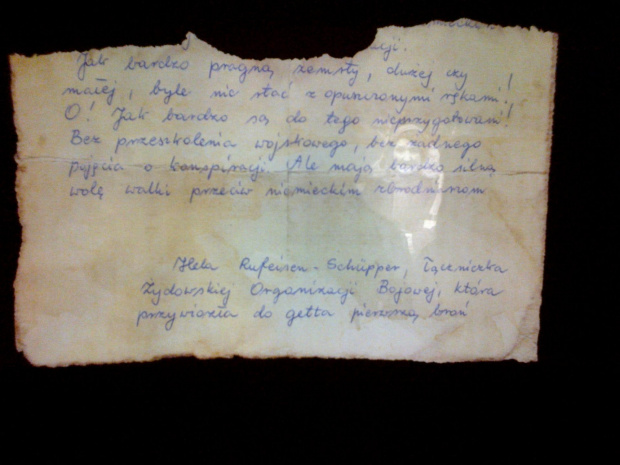 Jak bardzo pragną zemsty, dużej czy
małej, byle nie stać z opuszczonymi rękami!
O! Jak bardzo są do tego nieprzygotowani!
Bez przeszkolenia wojskowego, bez żadnego
pojęcia o konspiracji. Ale mają bardzo silną
wolę walki przeciw niemieckim zbrodniarzom
Hela Rufeisen-Schüpper, łączniczka
Żydowskiej Organizacji Bojowej, która
przywiozła do getta pierwszą broń